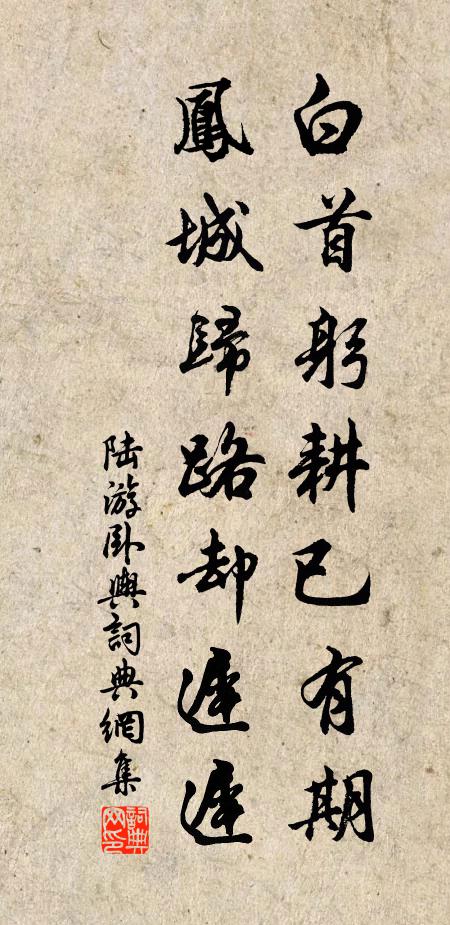 白首躬耕已有期
鳳城歸路却遲遲
陸游臥輿詞典網集
詞典网印